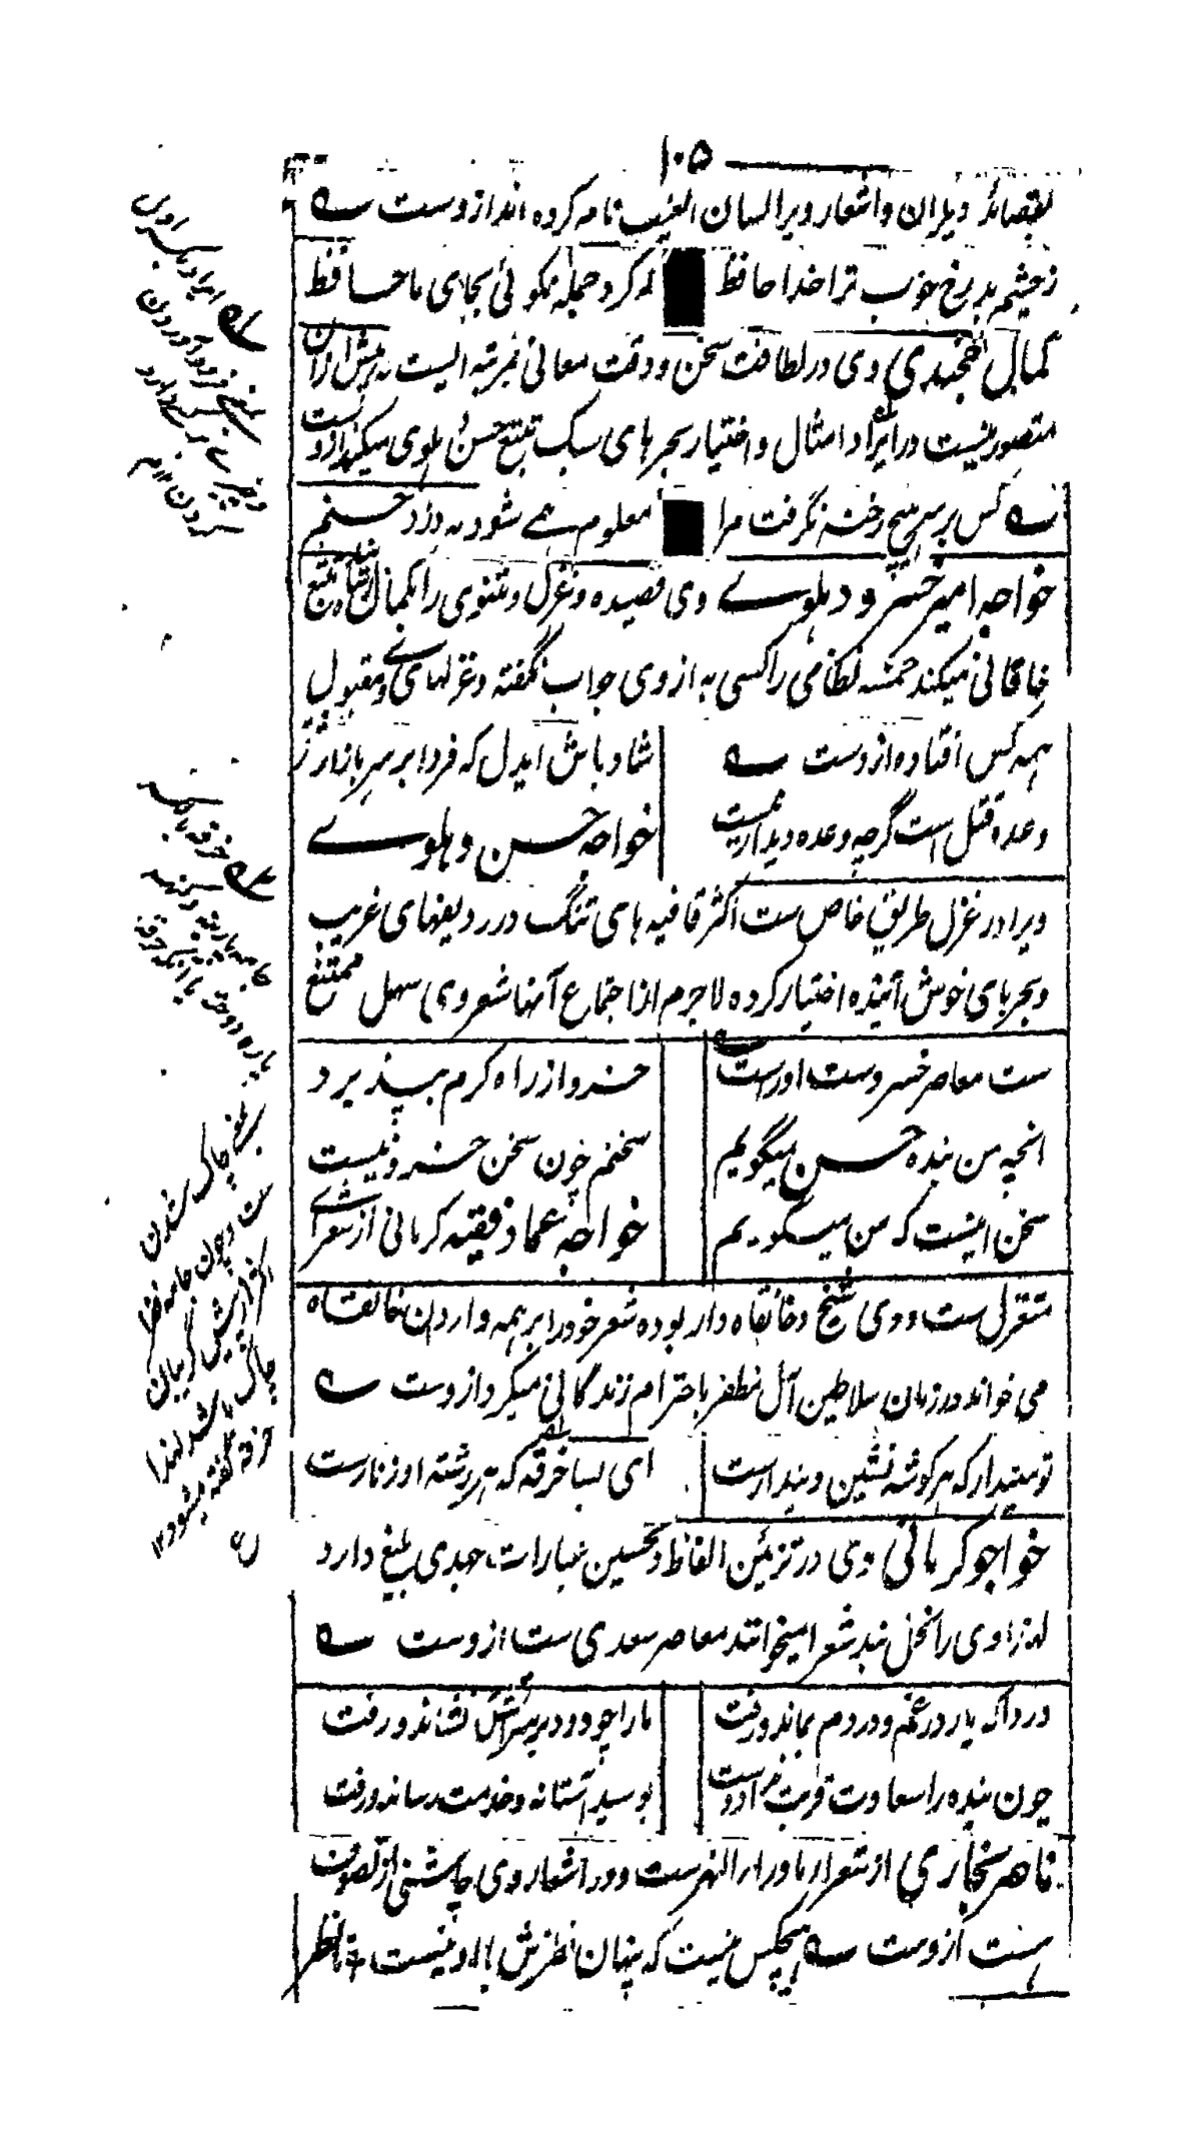 ۱۰۵
بقصائد دیگران و اشعار ویرا لسان الغیب نام کرده اند ازوست
زچشم بد رخ خوب ترا خدا حافظ که کرد جمله نکوئی بجای ما حافظ
کمال خجندی وی در لطافت سخن و دقت معانی بمرتبه ایست که بیش ازان
متصور نیست در ایراد امثال و اختیار بحرهای سبک تتبع حسن دهلوی میکند ازوست
کس بر سر هیچ رخنه نگرفت مرا معلوم همی شود که دزد حسنم
خواجه امیر خسرو دهلوی وی قصیده و غزل و مثنوی را بکمال رسانیده تتبع
خاقانی میکند خمسه نظامی را کسی به از وی جواب نگفته و غزلهای وی مقبول
همه کس افتاده ازوست شاد باش ایدل که فردا بر سر بازار
وعده قتل است گرچه وعده دیدار نیست خواجه حسن دهلوی
ویرا در غزل طریق خاص ست اکثر قافیه های تنگ و ردیفهای غریب
و بحرهای خوش آینده اختیار کرده لاجرم از اجتماع آنها شعر وی سهل ممتنع
ست معاصر خسروست اوراست خسرو از راه کرم بپذیرد
انچه من بنده حسن میگویم سخنم چون سخن خسرو نیست
سخن اینست که من میگویم خواجه عماد فقیه کرمانی از شعرای
متغزل ست و وی شیخ و خانقاه دار بوده شعر خود را بر همه واردان خانقاه
می خواند در زمان سلاطین آل مظفر باحترام زندگانی میکرد ازوست
تو مپندار که هر گوشه نشین دیندارست ای بسا خرقه که هر رشته او زنارست
خواجو کرمانی وی در تزئین الفاظ و تحسین عبارات جهدی بلیغ دارد
لهذا وی را نخل بند شعرا میخوانند معاصر سعدی ست ازوست
دردا که یار در غم و دردم بماند و رفت ما را چو دود بر سر آتش نشاند و رفت
چون بنده را سعادت قربت نداد دست بوسید آستانه و خدمت رساند و رفت
ناصر بخاری از شعرای ماوراء النهرست و در اشعار وی چاشنی از تصوف
هست ازوست هیچکس نیست که پنهان نظرش با او نیست
ایراد بکسر اول
چاک شدن
ست و چون جامه
گریبان
چاک باشد لهذا
خرقه گفته میشود ۱۲